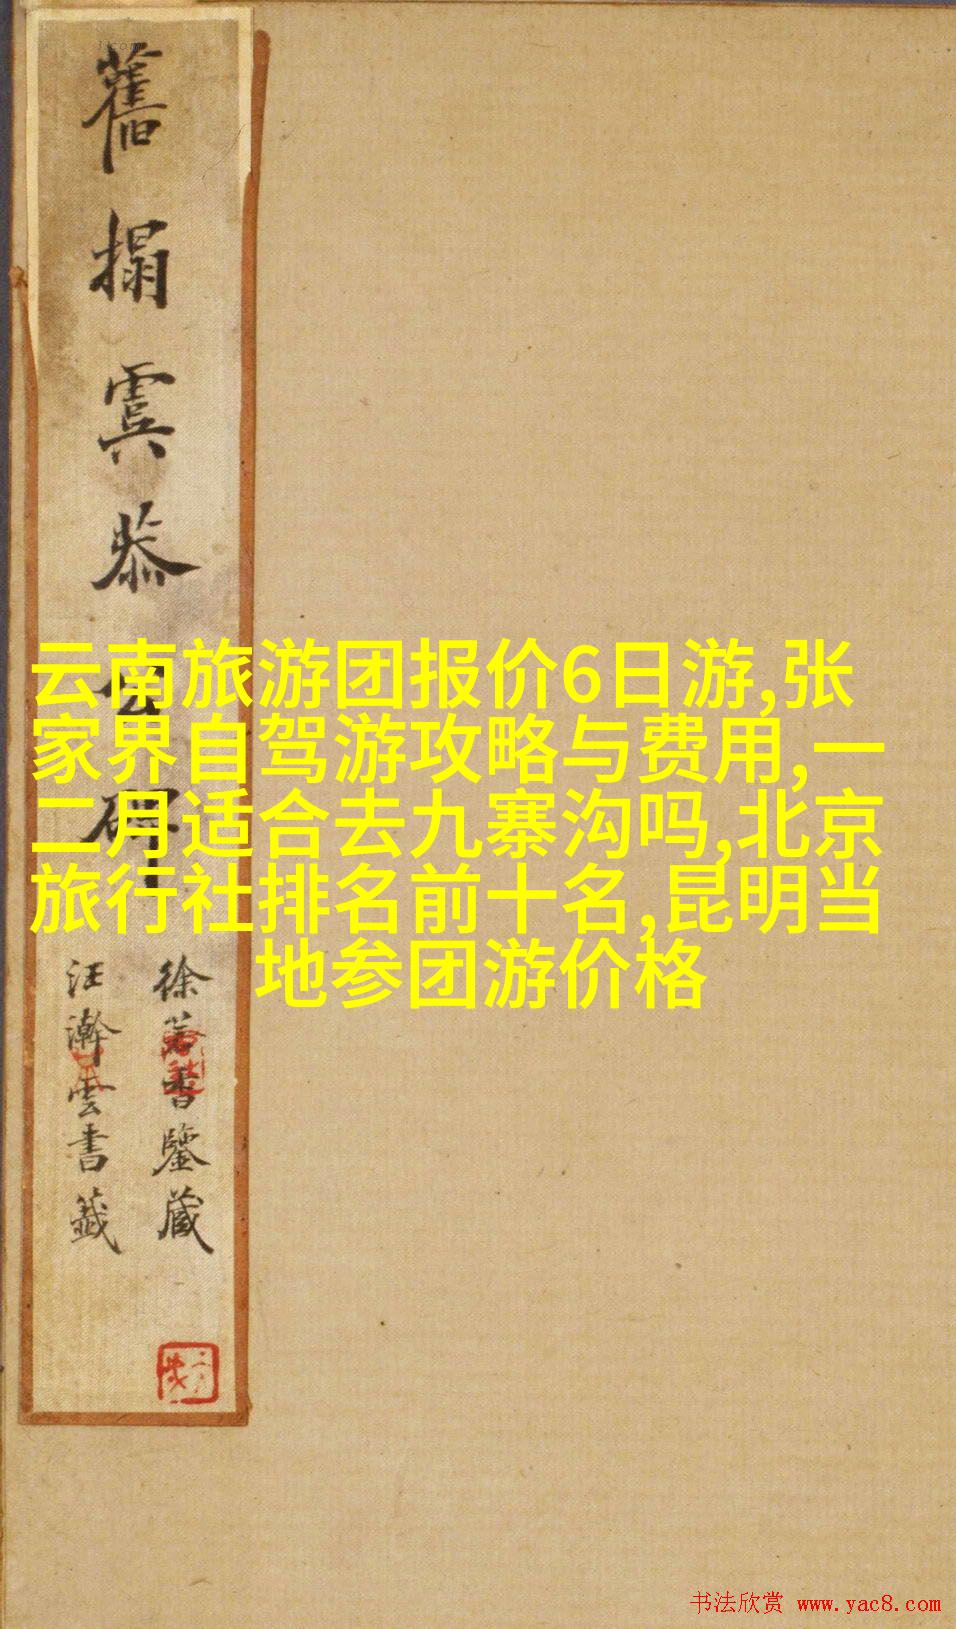 舊搨虞恭公碑
徐若書鑒藏
汪瀚雲書籤
云南旅游团报价6日游,张
家界自驾游攻略与费用,一
二月适合去九寨沟吗,北京
旅行社排名前十名,昆明当
地参团游价格
书法欣赏 www.yac8.com